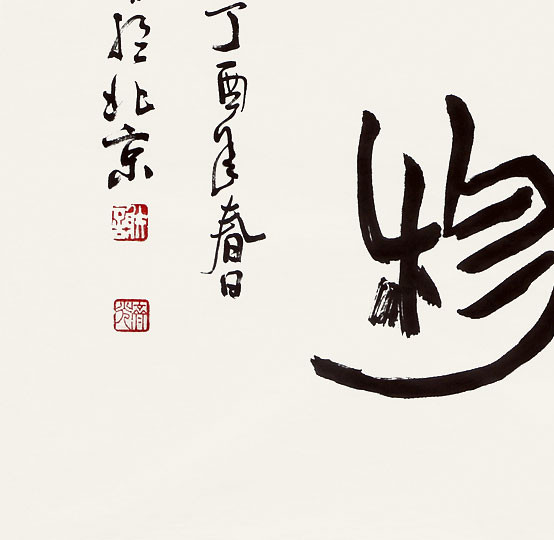 物
丁酉年春日
於北京